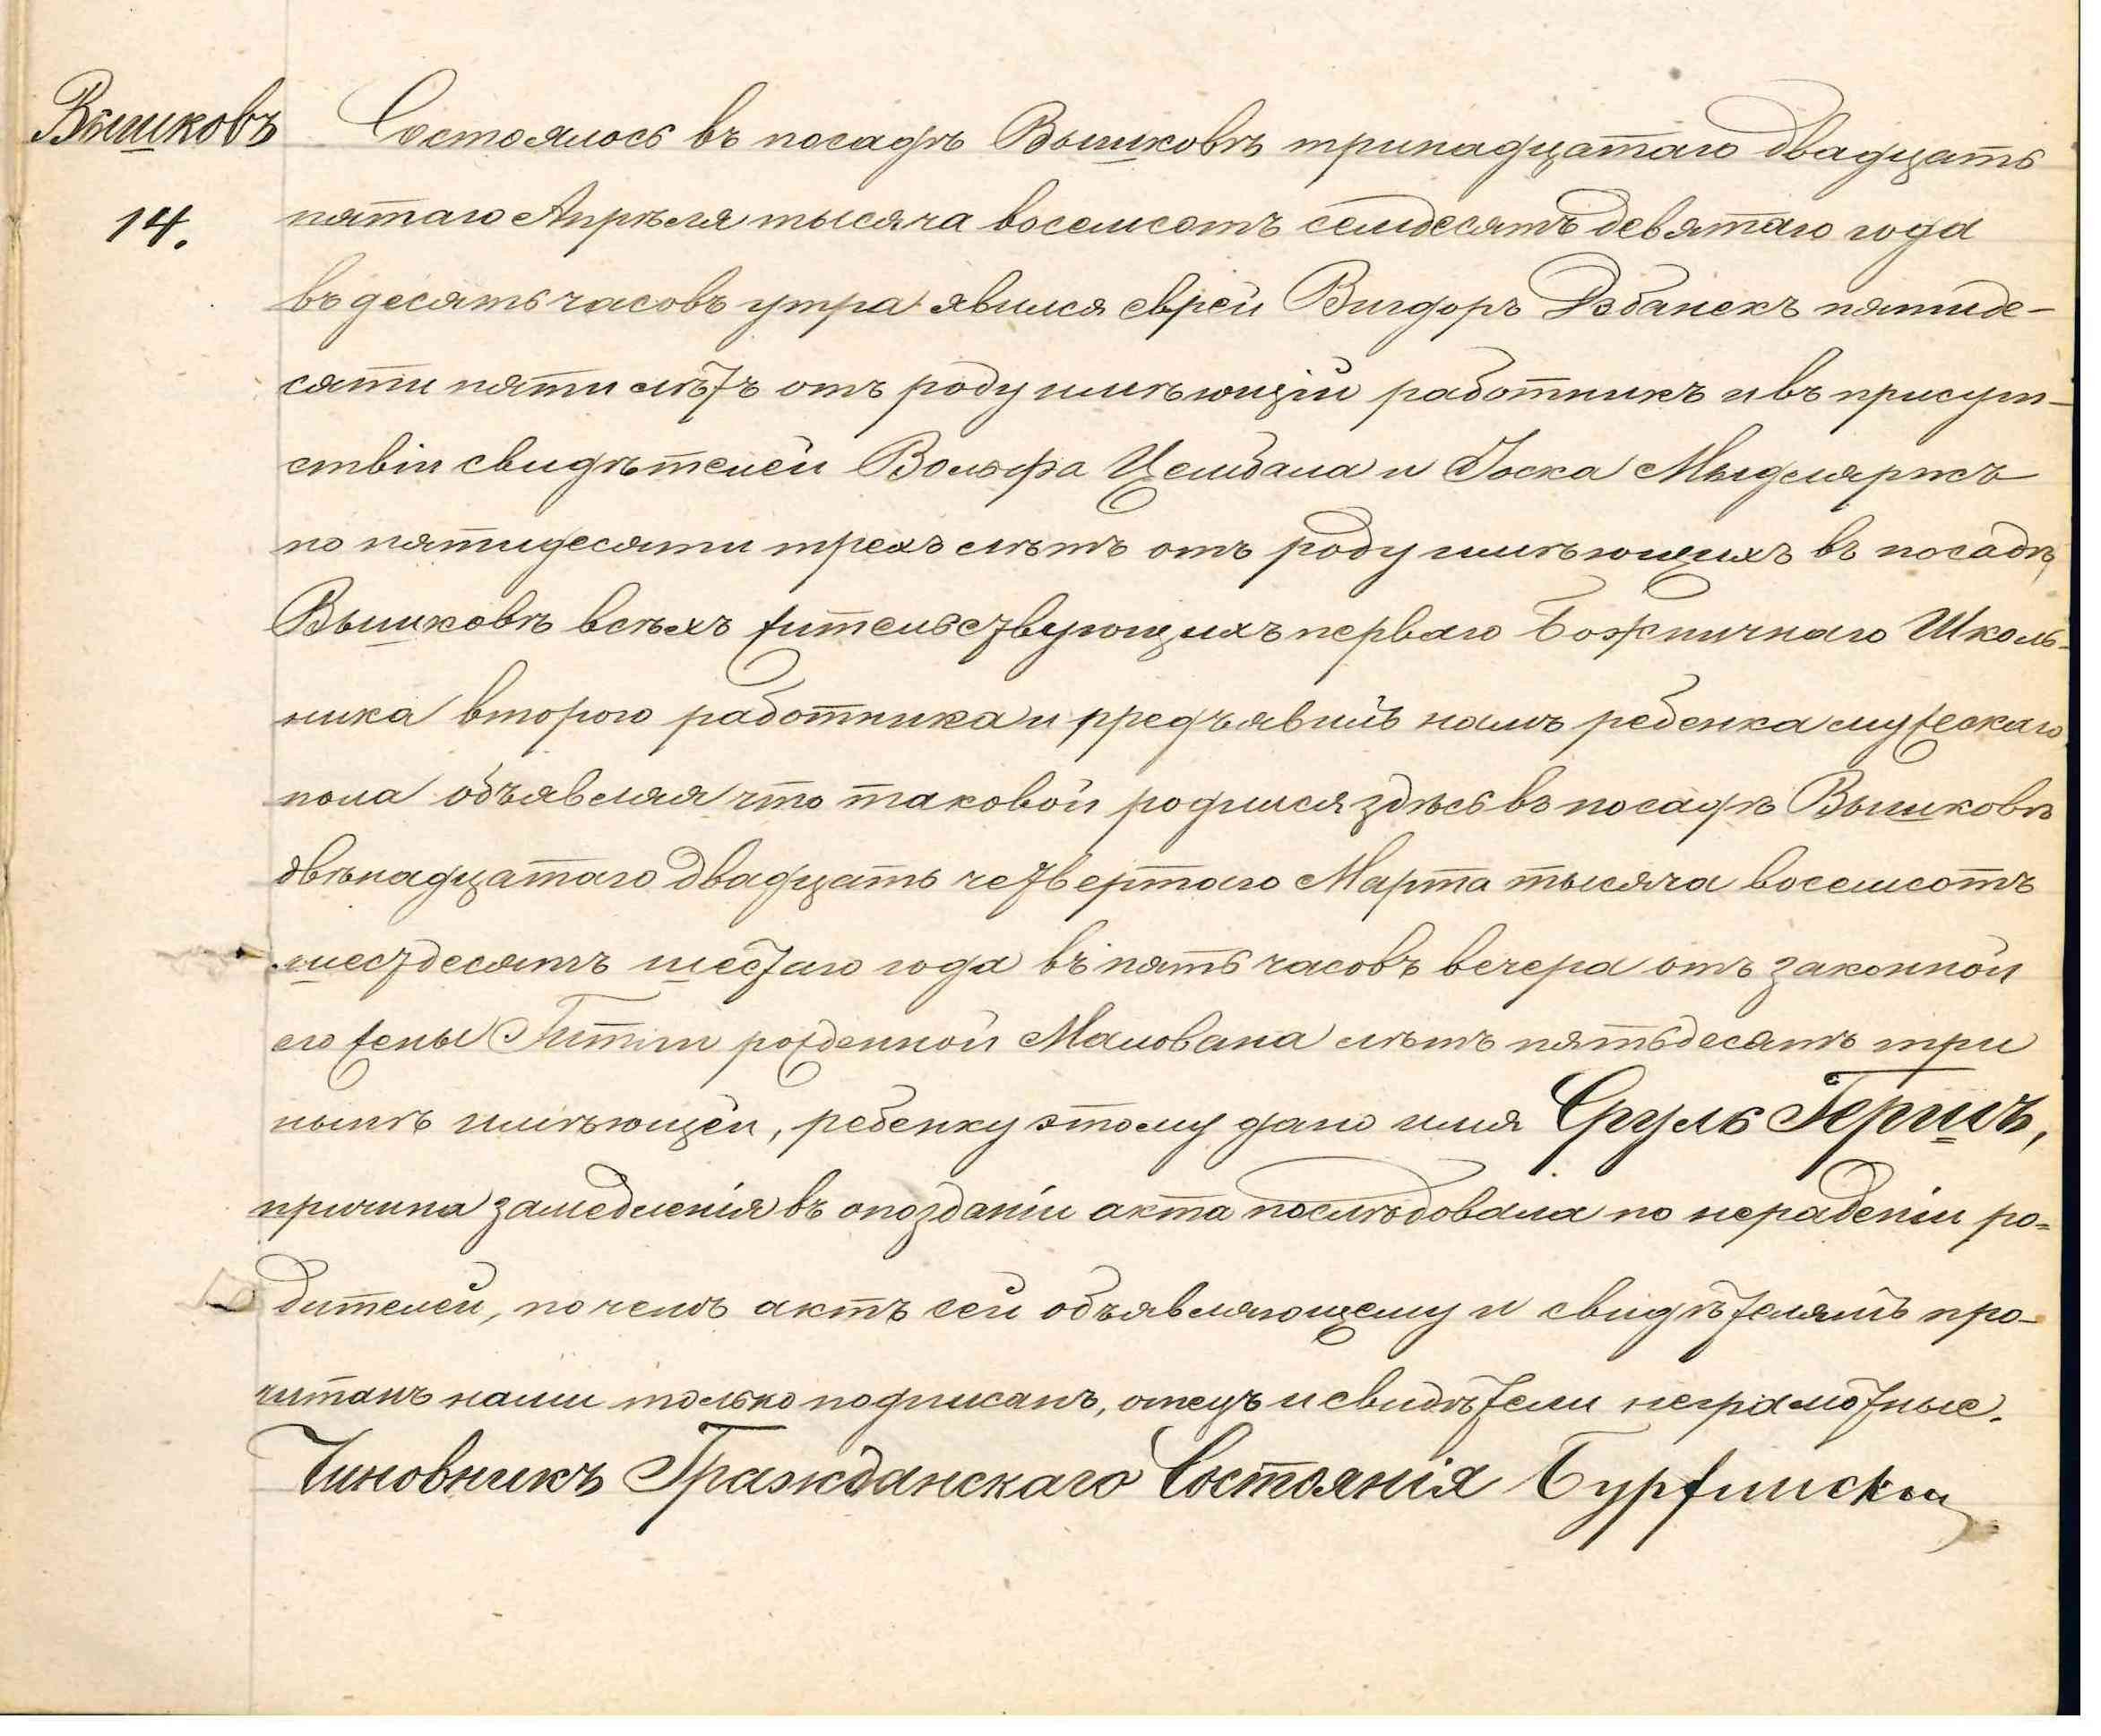 Вышковъ
Состоялось въ посадѣ Вышковѣ тринадцатаго двадцать
14.
пятаго Апрѣля тысяча восемсотъ семдесятъ девятаго года
въ десять часовъ утра явился еврей Вигдоръ Дзбанекъ пятиде-
сяти пяти лѣтъ отъ роду имѣющій работникъ и въ присут-
ствіи свидѣтелей Вольфа Цембала и Іоска Мыдляржъ
по пятидесяти трехъ лѣтъ отъ роду имѣющихъ въ посадѣ
Вышковѣ всѣхъ жительствующихъ перваго Божничнаго Школь-
ника второго работника и предъявилъ намъ ребенка мужескаго
пола объявляя что таковой родился здѣсь въ посадѣ Вышковѣ
двѣнадцатаго двадцать четвертаго Марта тысяча восемсотъ
шестдесятъ шестаго года въ пять часовъ вечера отъ законной
его жены Гитли рожденной Малована лѣтъ пятьдесятъ три
нынѣ имѣющей, ребенку этому дано имя Сруль Гершъ,
причина замедленія въ опозданіи акта послѣдовала по нерадѣніи ро-
дителей, по чемъ актъ сей объявляющему и свидѣтелямъ про-
читанъ нами только подписанъ, отецъ и свидѣтели неграмотные.
Чиновникъ Гражданскаго Состоянія